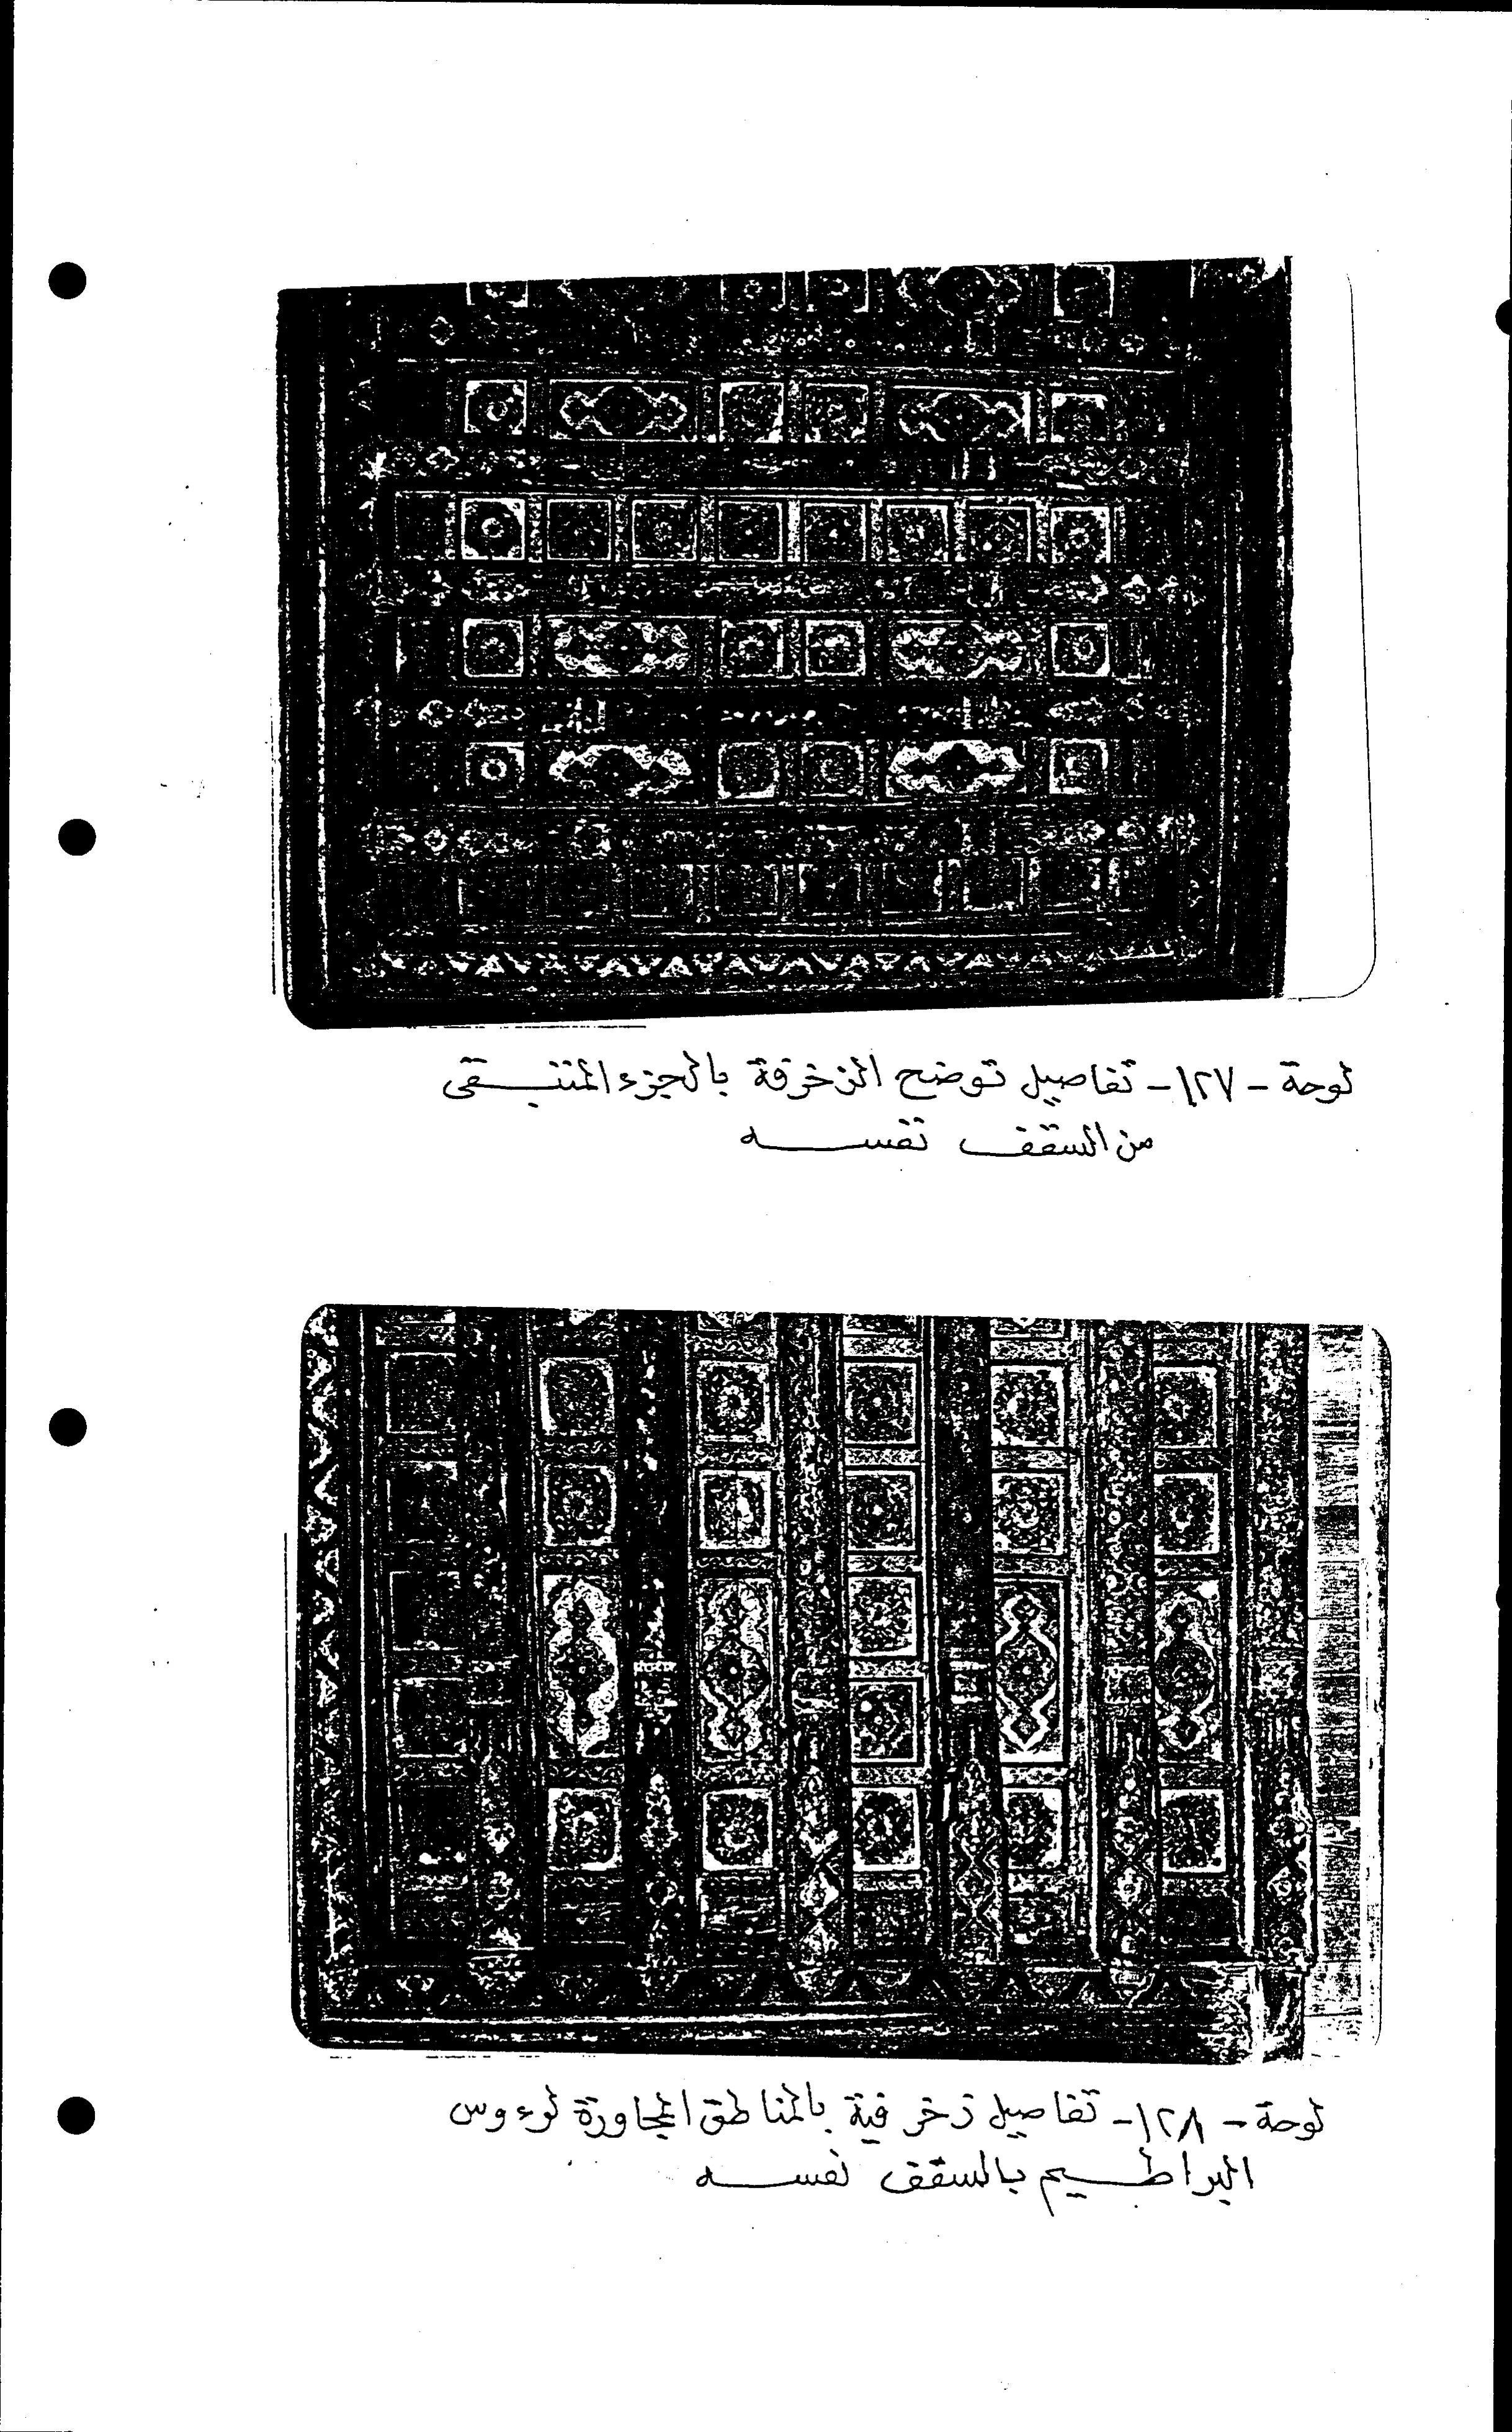 لوحة - ١٢٧ - تفاصيل توضح الزخرفة بالجزء المتبقى
من السقف نفسه
لوحة - ١٢٨ - تفاصيل زخرفية بالمناطق المجاورة لرءوس
البراطيم بالسقف نفسه